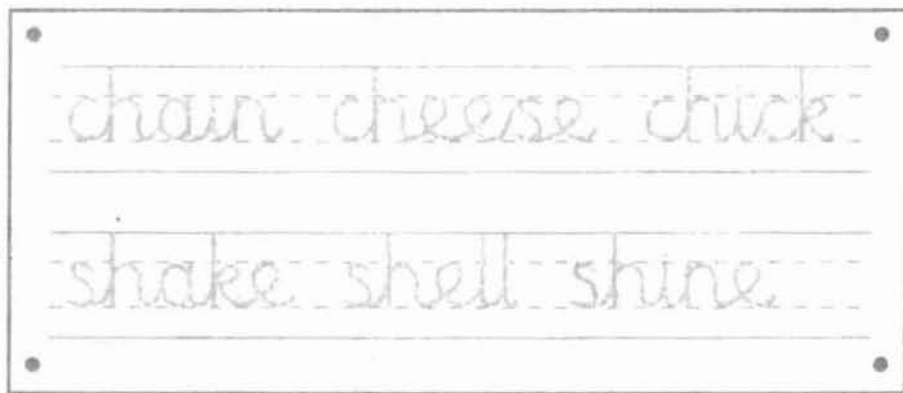 chain cheese chick
shake shell shine